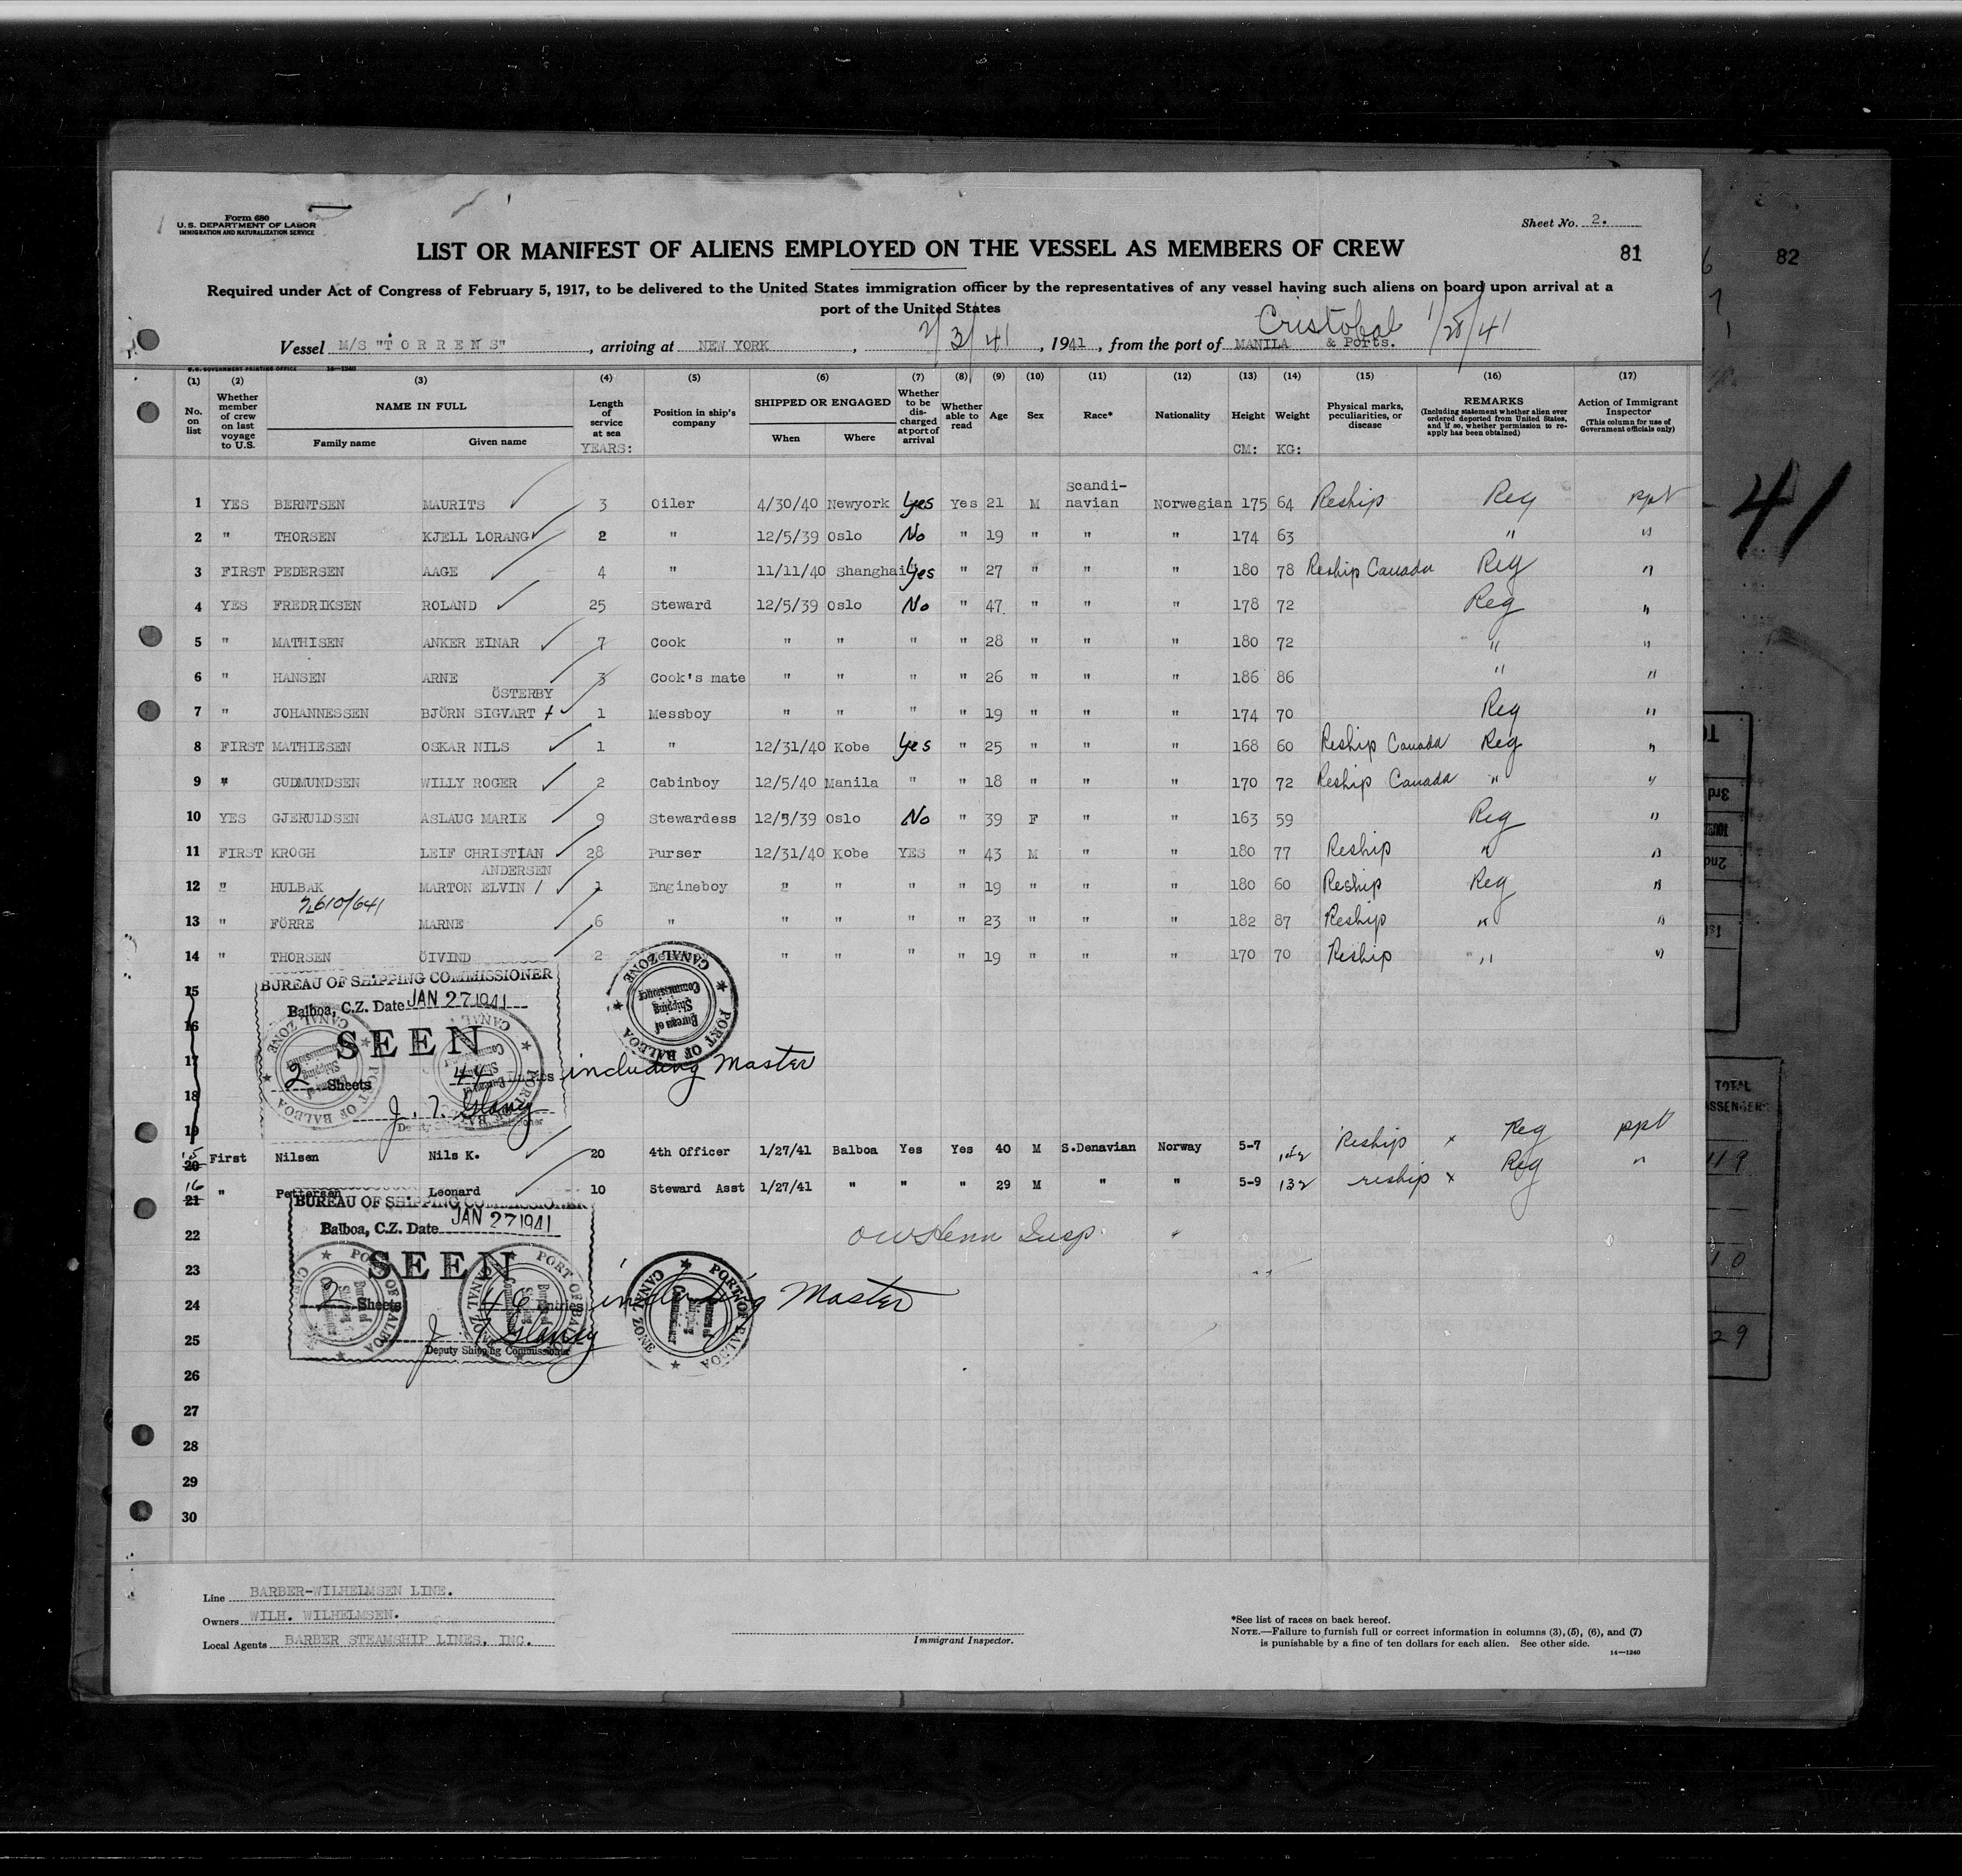 Form 680
U.S. DEPARTMENT OF LABOR
IMMIGRATION AND NATURALIZATION SERVICE
Sheet No. 2.
LIST OR MANIFEST OF ALIENS EMPLOYED ON THE VESSEL AS MEMBERS OF CREW
81
82
Required under Act of Congress of February 5, 1917, to be delivered to the United States immigration officer by the representatives of any vessel having such aliens on board upon arrival at a
port of the United States
Cristobal 1/28/41
Vessel M/S "TORRENS", arriving at NEW YORK, 2/3/41, 1941, from the port of MANILA & Ports.
U.S. GOVERNMENT PRINTING OFFICE 14—1240
(1) No. on list
(2) Whether member of crew on last voyage to U.S.
(3) NAME IN FULL Family name Given name
(4) Length of service at sea YEARS:
(5) Position in ship's company
(6) SHIPPED OR ENGAGED When Where
(7) Whether to be discharged at port of arrival
(8) Whether able to read
(9) Age
(10) Sex
(11) Race*
(12) Nationality
(13) Height CM:
(14) Weight KG:
(15) Physical marks, peculiarities, or disease
(16) REMARKS (Including statement whether alien ever ordered deported from United States, and if so, whether permission to reapply has been obtained)
(17) Action of Immigrant Inspector (This column for use of Government officials only)
1 YES BERNTSEN MAURITS 3 Oiler 4/30/40 Newyork Yes Yes 21 M Scandinavian Norwegian 175 64 Reship Reg ppt
2 " THORSEN KJELL LORANG 2 " 12/5/39 Oslo No " 19 " " " 174 63 " "
3 FIRST PEDERSEN AAGE 4 " 11/11/40 Shanghai Yes " 27 " " " 180 78 Reship Canada Reg "
4 YES FREDRIKSEN ROLAND 25 Steward 12/5/39 Oslo No " 47 " " " 178 72 Reg "
5 " MATHISEN ANKER EINAR 7 Cook " " " " 28 " " " 180 72 " "
6 " HANSEN ARNE 3 Cook's mate " " " " 26 " " " 186 86 " "
ÖSTERBY
7 " JOHANNESSEN BJÖRN SIGVART 1 Messboy " " " " 19 " " " 174 70 Reg "
8 FIRST MATHIESEN OSKAR NILS 1 " 12/31/40 Kobe Yes " 25 " " " 168 60 Reship Canada Reg "
9 " GUDMUNDSEN WILLY ROGER 2 Cabinboy 12/5/40 Manila " " 18 " " " 170 72 Reship Canada " "
10 YES GJERULDSEN ASLAUG MARIE 9 Stewardess 12/5/39 Oslo No " 39 F " " 163 59 Reg "
11 FIRST KROGH LEIF CHRISTIAN 28 Purser 12/31/40 Kobe YES " 43 M " " 180 77 Reship " "
ANDERSEN
12 " HULBAK MARTON ELVIN 1 Engineboy " " " " 19 " " " 180 60 Reship Reg "
2610/641
13 " FÖRRE MARNE 6 " " " " " 23 " " " 182 87 Reship " "
14 " THORSEN ÖIVIND 2 " " " " 19 " " " 170 70 Reship " "
15
16
17
18
19
BUREAU OF SHIPPING COMMISSIONER
Balboa, C.Z. Date JAN 27 1941
SEEN
2 Sheets 44 including Master
J. T. Glancy
PORT OF BALBOA CANAL ZONE Bureau of Shipping Commissioner
15 20 First Nilsen Nils K. 20 4th Officer 1/27/41 Balboa Yes Yes 40 M S.Denavian Norway 5-7 Reship x Reg ppt
16 21 " Pettersen Leonard 10 Steward Asst 1/27/41 " " " 29 M " " 5-9 132 reship x Reg "
BUREAU OF SHIPPING COMMISSIONER
Balboa, C.Z. Date JAN 27 1941
SEEN
2 Sheets 46 Entries including Master
J. T. Glancy
Deputy Shipping Commissioner
PORT OF BALBOA CANAL ZONE
22
23
24
25
26
27
28
29
30
Line BARBER-WILHELMSEN LINE.
Owners WILH. WILHELMSEN.
Local Agents BARBER STEAMSHIP LINES, INC.
Immigrant Inspector.
*See list of races on back hereof.
NOTE.—Failure to furnish full or correct information in columns (3), (5), (6), and (7)
is punishable by a fine of ten dollars for each alien. See other side.
14—1240
41
TOTAL